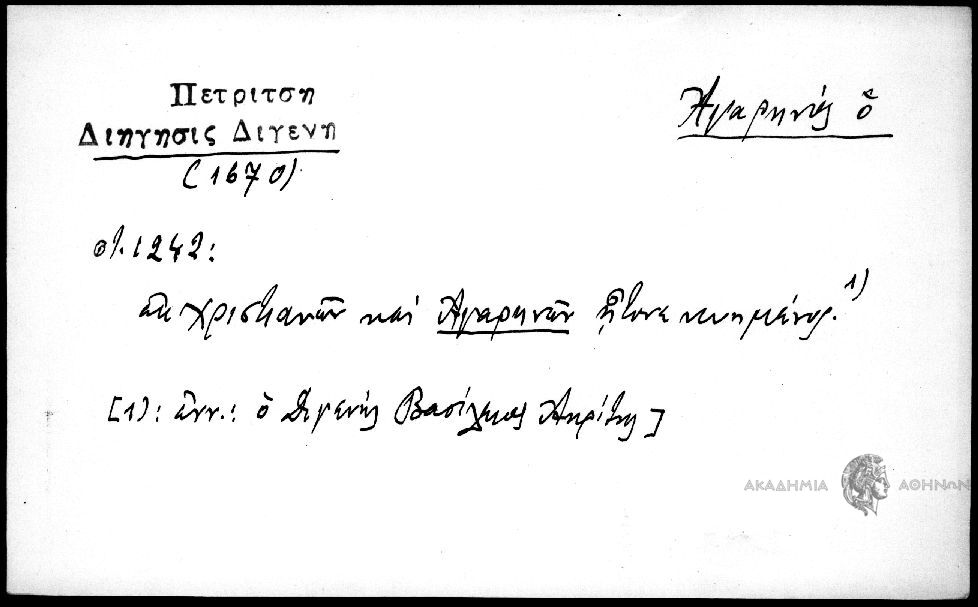 Πετριτση
Διηγησις Διγενη
(1670)
Ἀγαρηνός ὁ
στ. 1242:
ἐκ χριστιανῶν καί Ἀγαρηνῶν ἤτονε κινημένος. 1)
[1): ἐνν.: ὁ Διγενής Βασίλειος Ἀκρίτης]
ΑΚΑΔΗΜΙΑ ΑΘΗΝΩΝ